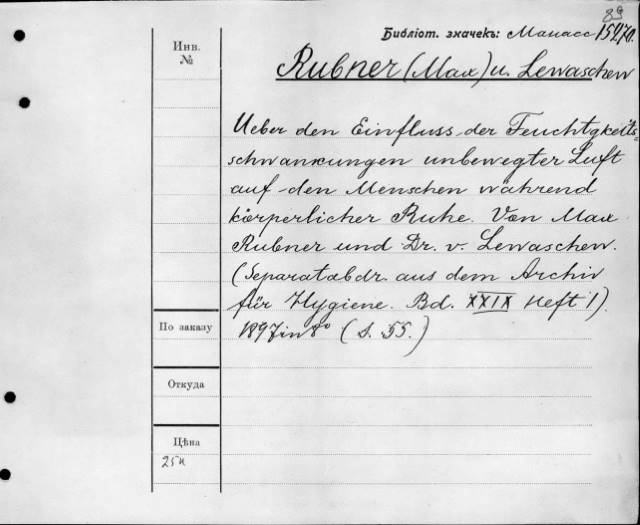 89
Библіот. значекъ: Манасс 15270.
Инв.
№
Rubner (Max) u. Lewaschew
Ueber den Einfluss der Feuchtgkeits
schwankungen unbewegter Luft
auf den Menschen während
körperlicher Ruhe. Von Max
Rubner und Dr. v. Lewaschew.
(Separatabdr. aus dem Archiv
für Hygiene. Bd. XXIX Heft 1).
1897 in 8° (S. 55.)
По заказу
Откуда
Цѣна
25к